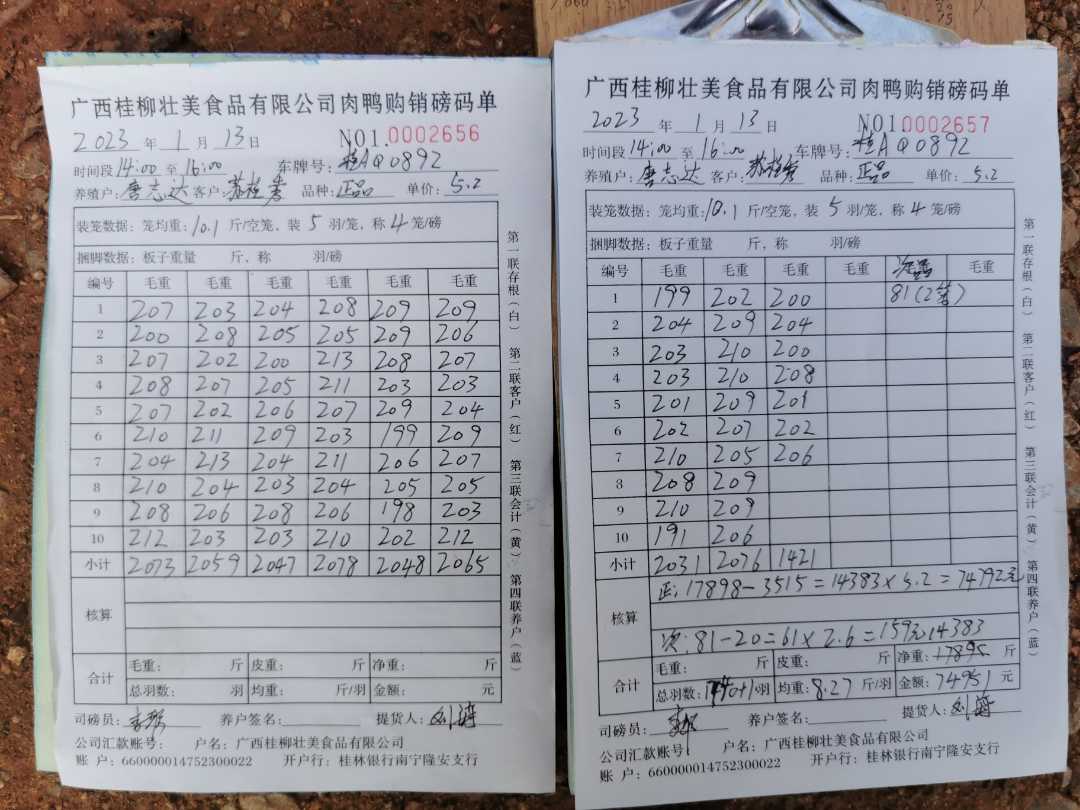 广西桂柳壮美食品有限公司肉鸭购销磅码单
2023 年 1 月 13 日 NO1.0002656
时间段 14:00 至 16:00 车牌号: 桂AQ0892
养殖户: 唐志达 客户: 苏桂秀 品种: 正品 单价: 5.2
装笼数据: 笼均重: 10.1 斤/空笼, 装 5 羽/笼, 称 4 笼/磅
捆脚数据: 板子重量 斤, 称 羽/磅
编号 毛重 毛重 毛重 毛重 毛重 毛重
1 207 203 204 208 209 209
2 200 208 205 205 209 206
3 207 202 200 213 208 207
4 208 207 205 211 203 203
5 207 202 206 207 209 204
6 210 211 209 203 199 209
7 204 213 204 211 206 207
8 210 204 203 204 205 205
9 208 206 208 206 198 203
10 212 203 203 210 202 212
小计 2073 2059 2047 2078 2048 2065
核算
合计 毛重: 斤 皮重: 斤 净重: 斤
总羽数: 羽 均重: 斤/羽 金额: 元
司磅员: 养户签名: 提货人:
公司汇款账号: 户名: 广西桂柳壮美食品有限公司
账 户: 660000014752300022 开户行: 桂林银行南宁隆安支行
第一联存根(白) 第二联客户(红) 第三联会计(黄) 第四联养户(蓝)
广西桂柳壮美食品有限公司肉鸭购销磅码单
2023 年 1 月 13 日 NO1.0002657
时间段 14:00 至 16:00 车牌号: 桂AQ0892
养殖户: 唐志达 客户: 苏桂秀 品种: 正品 单价: 5.2
装笼数据: 笼均重: 10.1 斤/空笼, 装 5 羽/笼, 称 4 笼/磅
捆脚数据: 板子重量 斤, 称 羽/磅
编号 毛重 毛重 毛重 毛重 毛重
1 199 202 200 81(2笼)
2 204 209 204
3 203 210 200
4 203 210 208
5 201 209 201
6 202 207 202
7 210 205 206
8 208 209
9 210 209
10 191 206
小计 2031 2076 1421
核算 正: 17898-3515=14383×5.2=74792元
次: 81-20=61×2.6=159元 14383
合计 毛重: 斤 皮重: 斤 净重: 17895 斤
总羽数: 羽 均重: 8.27 斤/羽 金额: 74951 元
司磅员: 养户签名: 提货人:
公司汇款账号: 户名: 广西桂柳壮美食品有限公司
账 户: 660000014752300022 开户行: 桂林银行南宁隆安支行
第一联存根(白) 第二联客户(红) 第三联会计(黄) 第四联养户(蓝)